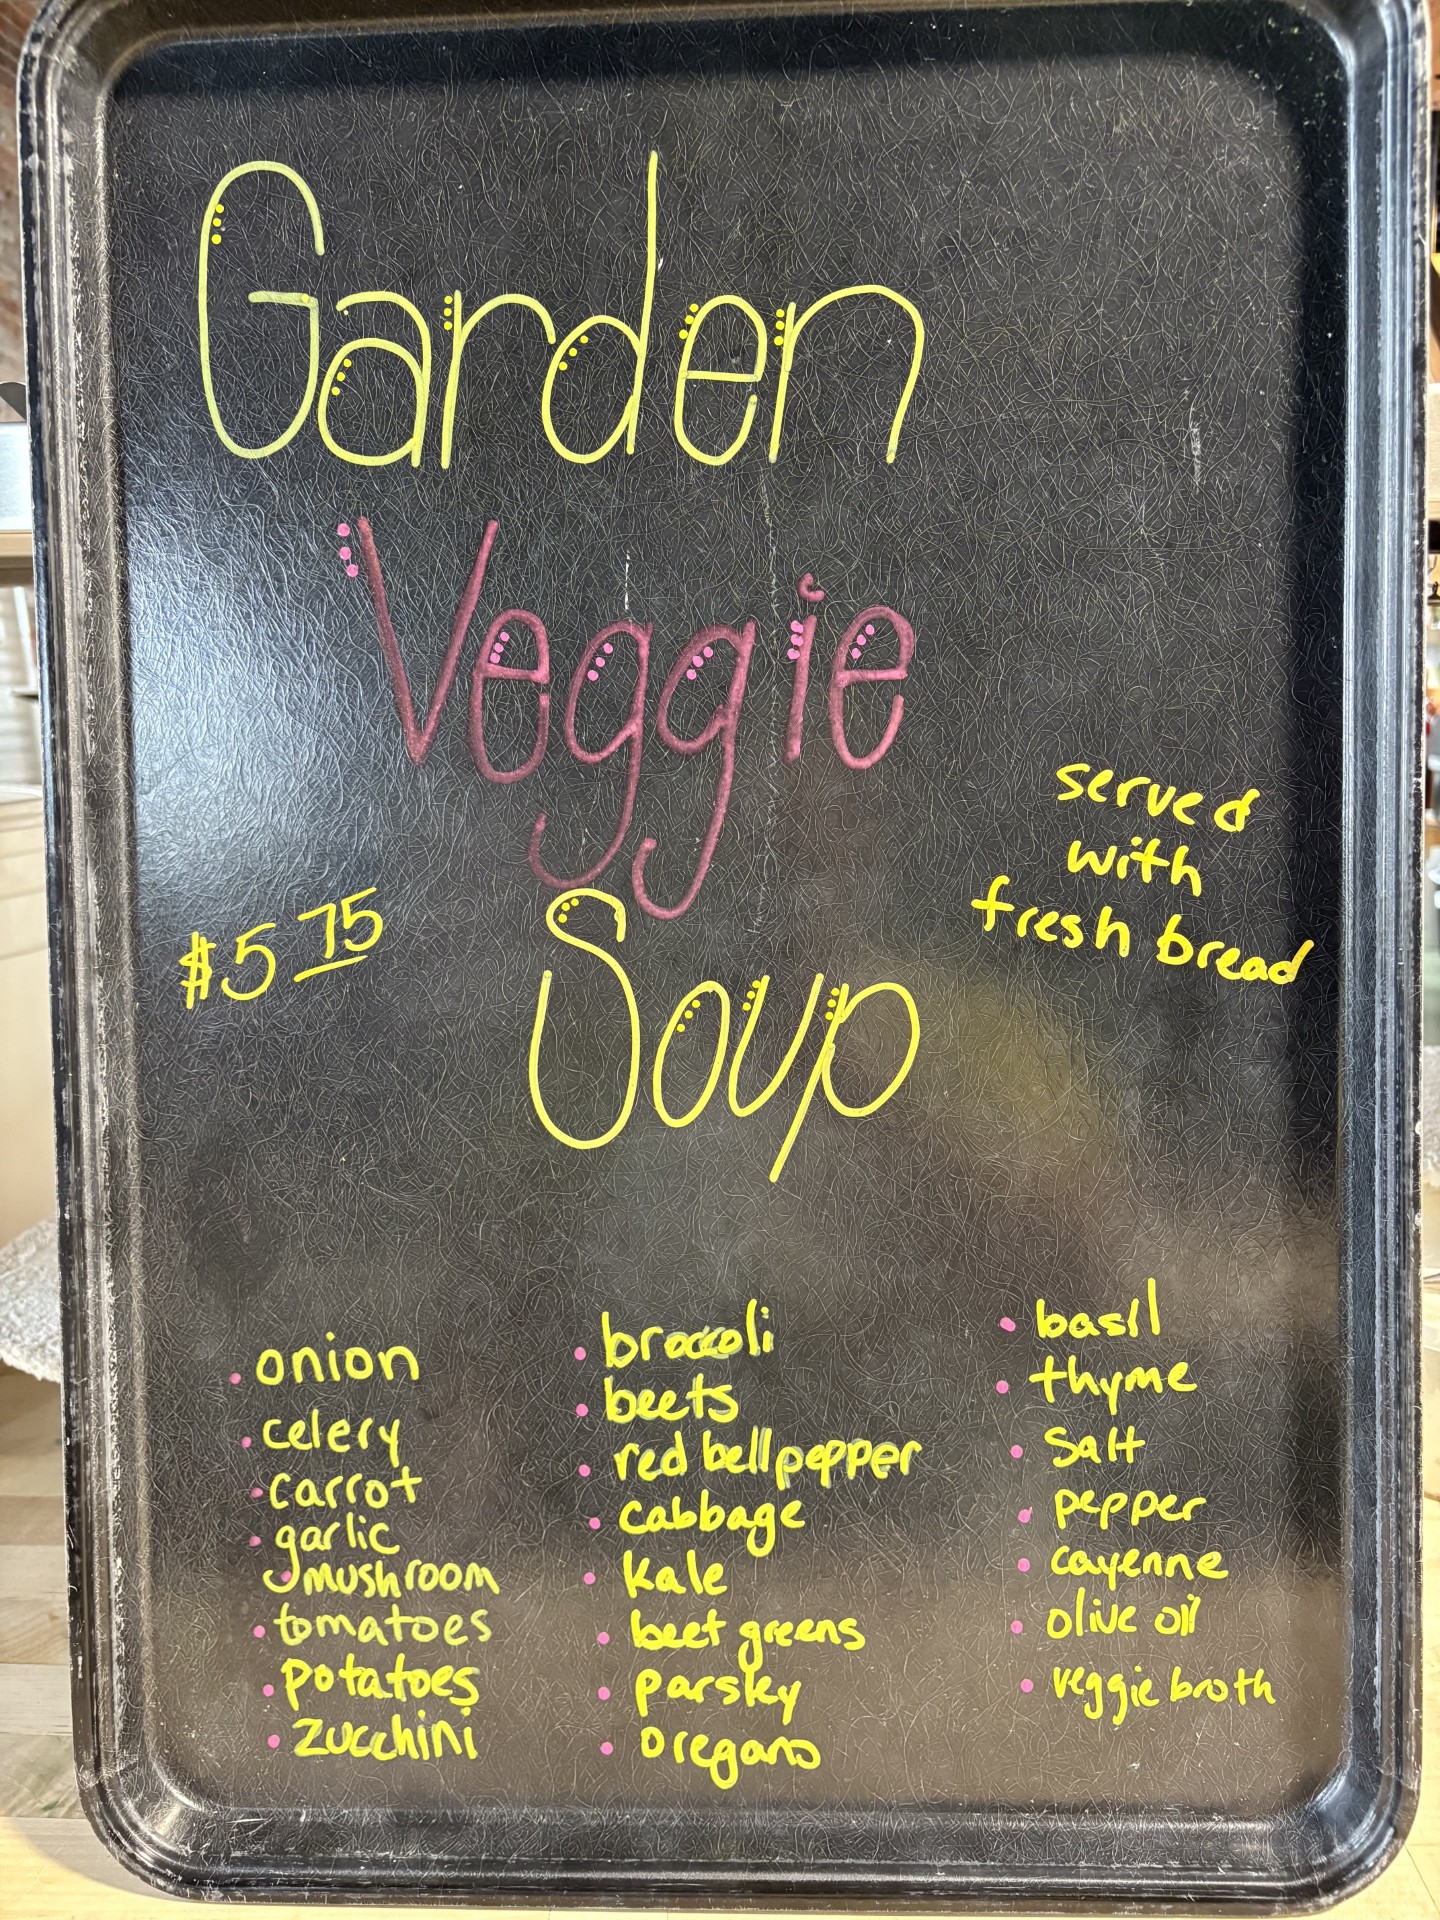 Garden
Veggie
Soup
$5 75
served
with
fresh bread
onion
celery
carrot
garlic
mushroom
tomatoes
potatoes
zucchini
broccoli
beets
red bell pepper
cabbage
kale
beet greens
parsley
oregano
basil
thyme
Salt
pepper
cayenne
olive oil
veggie broth